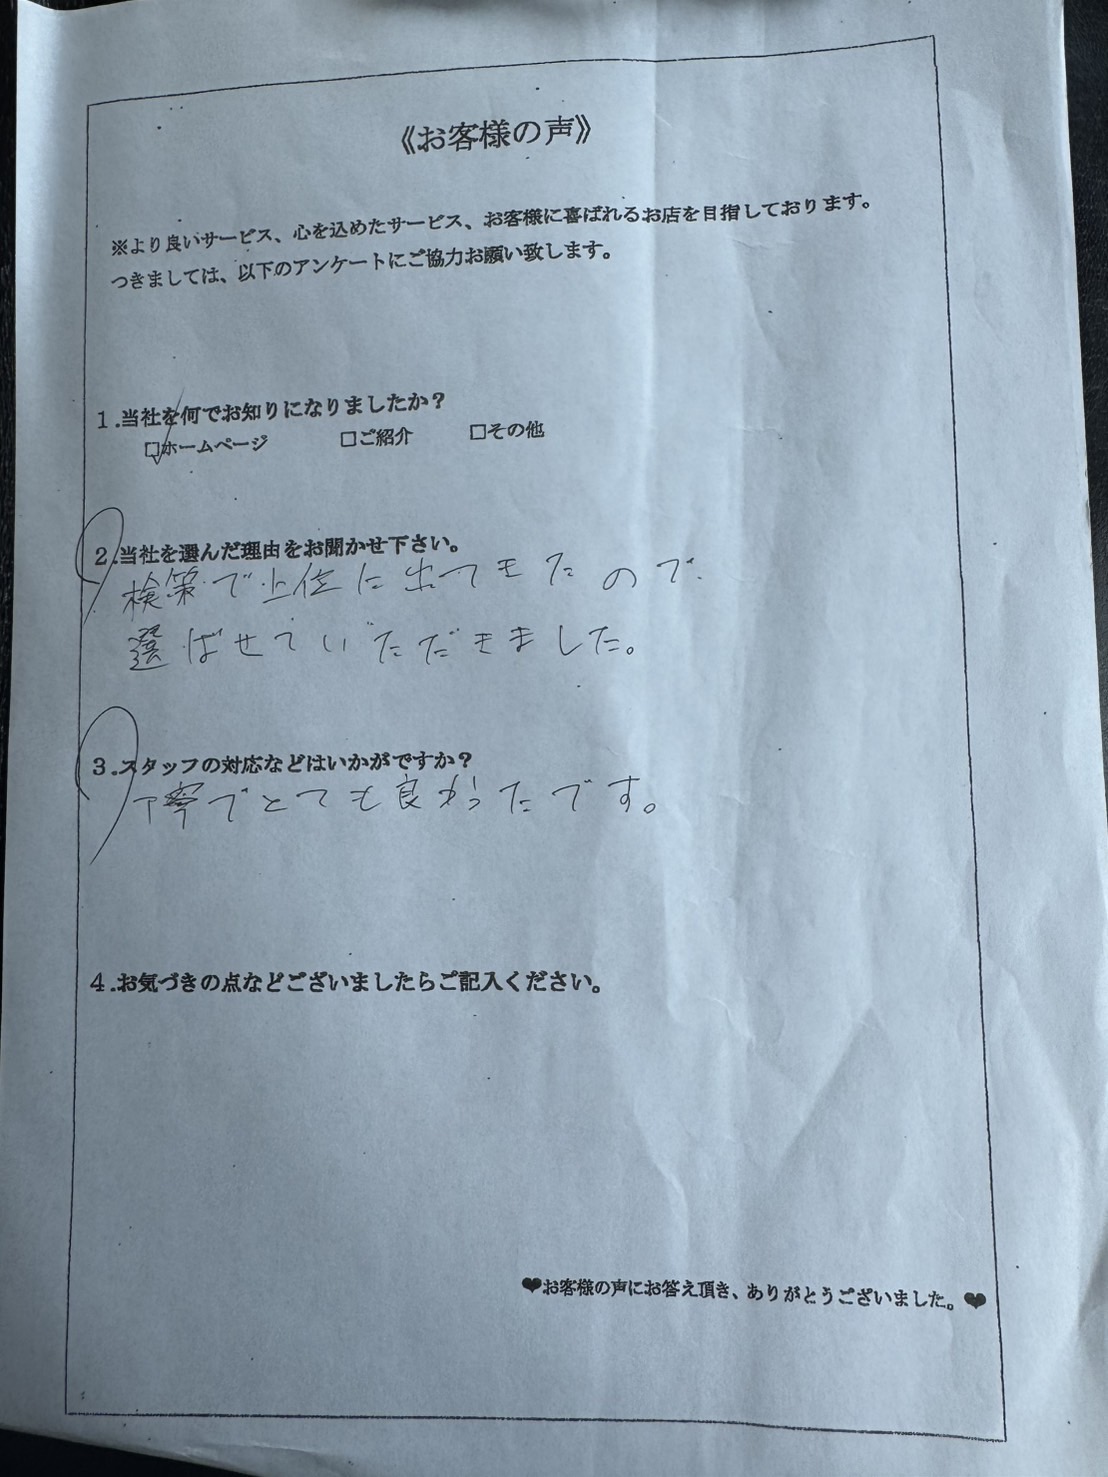 《お客様の声》
※より良いサービス、心を込めたサービス、お客様に喜ばれるお店を目指しております。
つきましては、以下のアンケートにご協力お願い致します。
1.当社を何でお知りになりましたか？
☑ホームページ □ご紹介 □その他
2.当社を選んだ理由をお聞かせ下さい。
検策で上位に出てきたので
選ばせていただきました。
3.スタッフの対応などはいかがですか？
丁寧でとても良かったです。
4.お気づきの点などございましたらご記入ください。
❤お客様の声にお答え頂き、ありがとうございました。❤